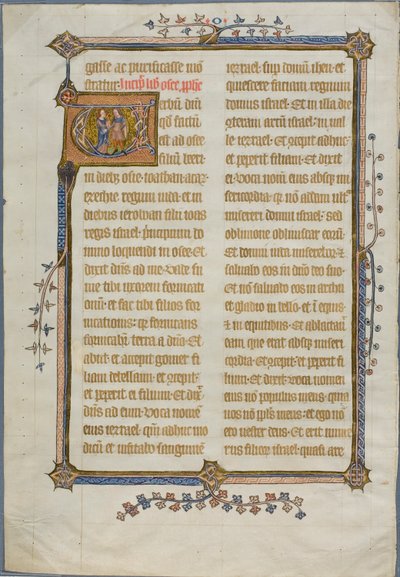 O
gasse ac purificasse mō
stratur. Incip̄ lib̄ osee. p̄phe
Verbū dn̄i
qd̄ factū
est ad osee
filiū beeri
in dieb; ozie. ioathan. acaz.
ezechie regum iuda. et in
diebus ieroboam filii ioas
regis israel. Principium do
mino loquendi in osee. Et
dixit dn̄s ad me. Vade su
me tibi uxorem fornicati
onū. et fac tibi filios for
nicationus: qꝛ fornicans
fornicabit̄ terra a dn̄o. Et
abiit et accepit gomer fi
liam debelaim. et ꝯcepit
et peperit ei filium. Et dix̄
dn̄s ad eum. Voca nomē
eius iezrael. qm̄ adhuc mo
dicū et uisitabo sanguinē
iezrael. sup domū iheu. et
quiescere faciam regnum
domus israel. Et in illa die
ꝯteram arcū israel. in ual
le iezrael. Et ꝯcepit adhuc
et peperit filiam. Et dixit
ei. Voca nomē eius absq; mi
sericordia. qꝛ nō addam ult̄
misereri domui israel: sed
obliuione obliuiscar eorū.
Et domui iuda miserebor. et
saluabo eos in dn̄o deo suo.
Et nō saluabo eos in archu
et gladio in bello. et ī equis
et in equitibus. Et ablactauit
eam que erat absq; miseri
cordia. Et ꝯcepit. et peperit fi
lium. Et dixit. Voca nomen
eius nō populus meus. quia
uos nō pl̄s meus. et ego nō
ero uester deus. Et erit nume
rus filiorꝫ israel. quasi are